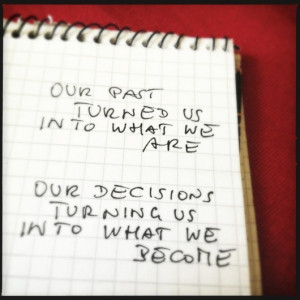 OUR PAST
TURNED US
INTO WHAT WE
ARE
OUR DECISIONS
TURNING US
INTO WHAT WE
BECOME